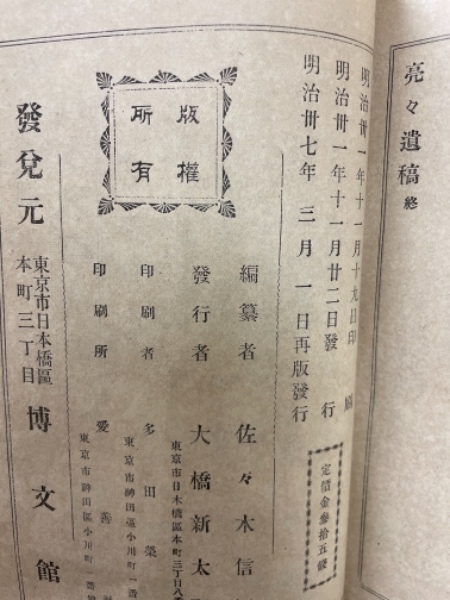 亮々遺稿 終
明治卅一年十一月十九日印刷
明治卅一年十一月廿二日發行
明治卅七年三月一日再版發行
定價金參拾五錢
編纂者 佐々木信
發行者 大橋新太
東京市日本橋區本町三丁目八番
印刷者 多田榮
東京市神田區小川町一番
印刷所 愛善
東京市神田區小川町一番
版權
所有
發兌元
東京市日本橋區
本町三丁目
博文館